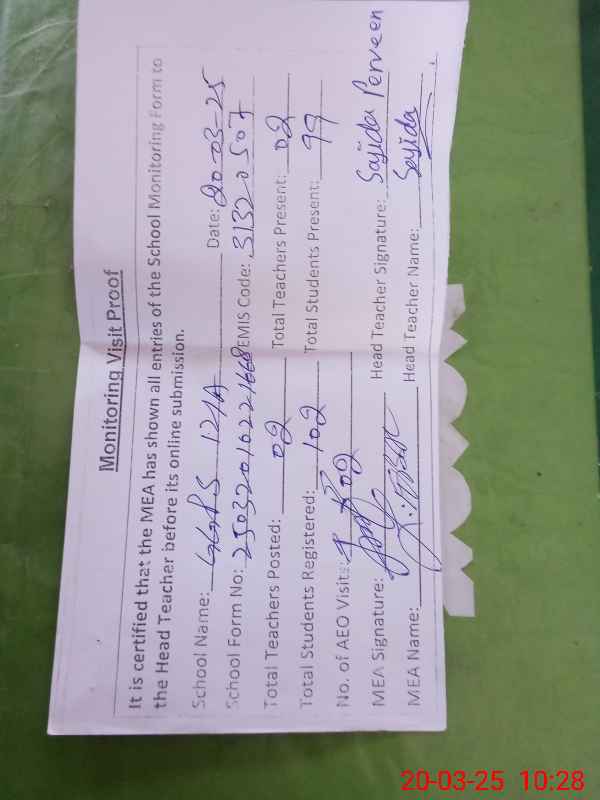 Monitoring Visit Proof
It is certified that the MEA has shown all entries of the School Monitoring Form to
the Head Teacher before its online submission.
School Name: GGPS 121A Date: 20-03-25
School Form No: 25032010221668 EMIS Code: 31320507
Total Teachers Posted: 02 Total Teachers Present: 02
Total Students Registered: 102 Total Students Present: 99
No. of AEO Visits: 02
MEA Signature: Head Teacher Signature: Sajida Perveen
MEA Name: Head Teacher Name: Sajida
20-03-25 10:28